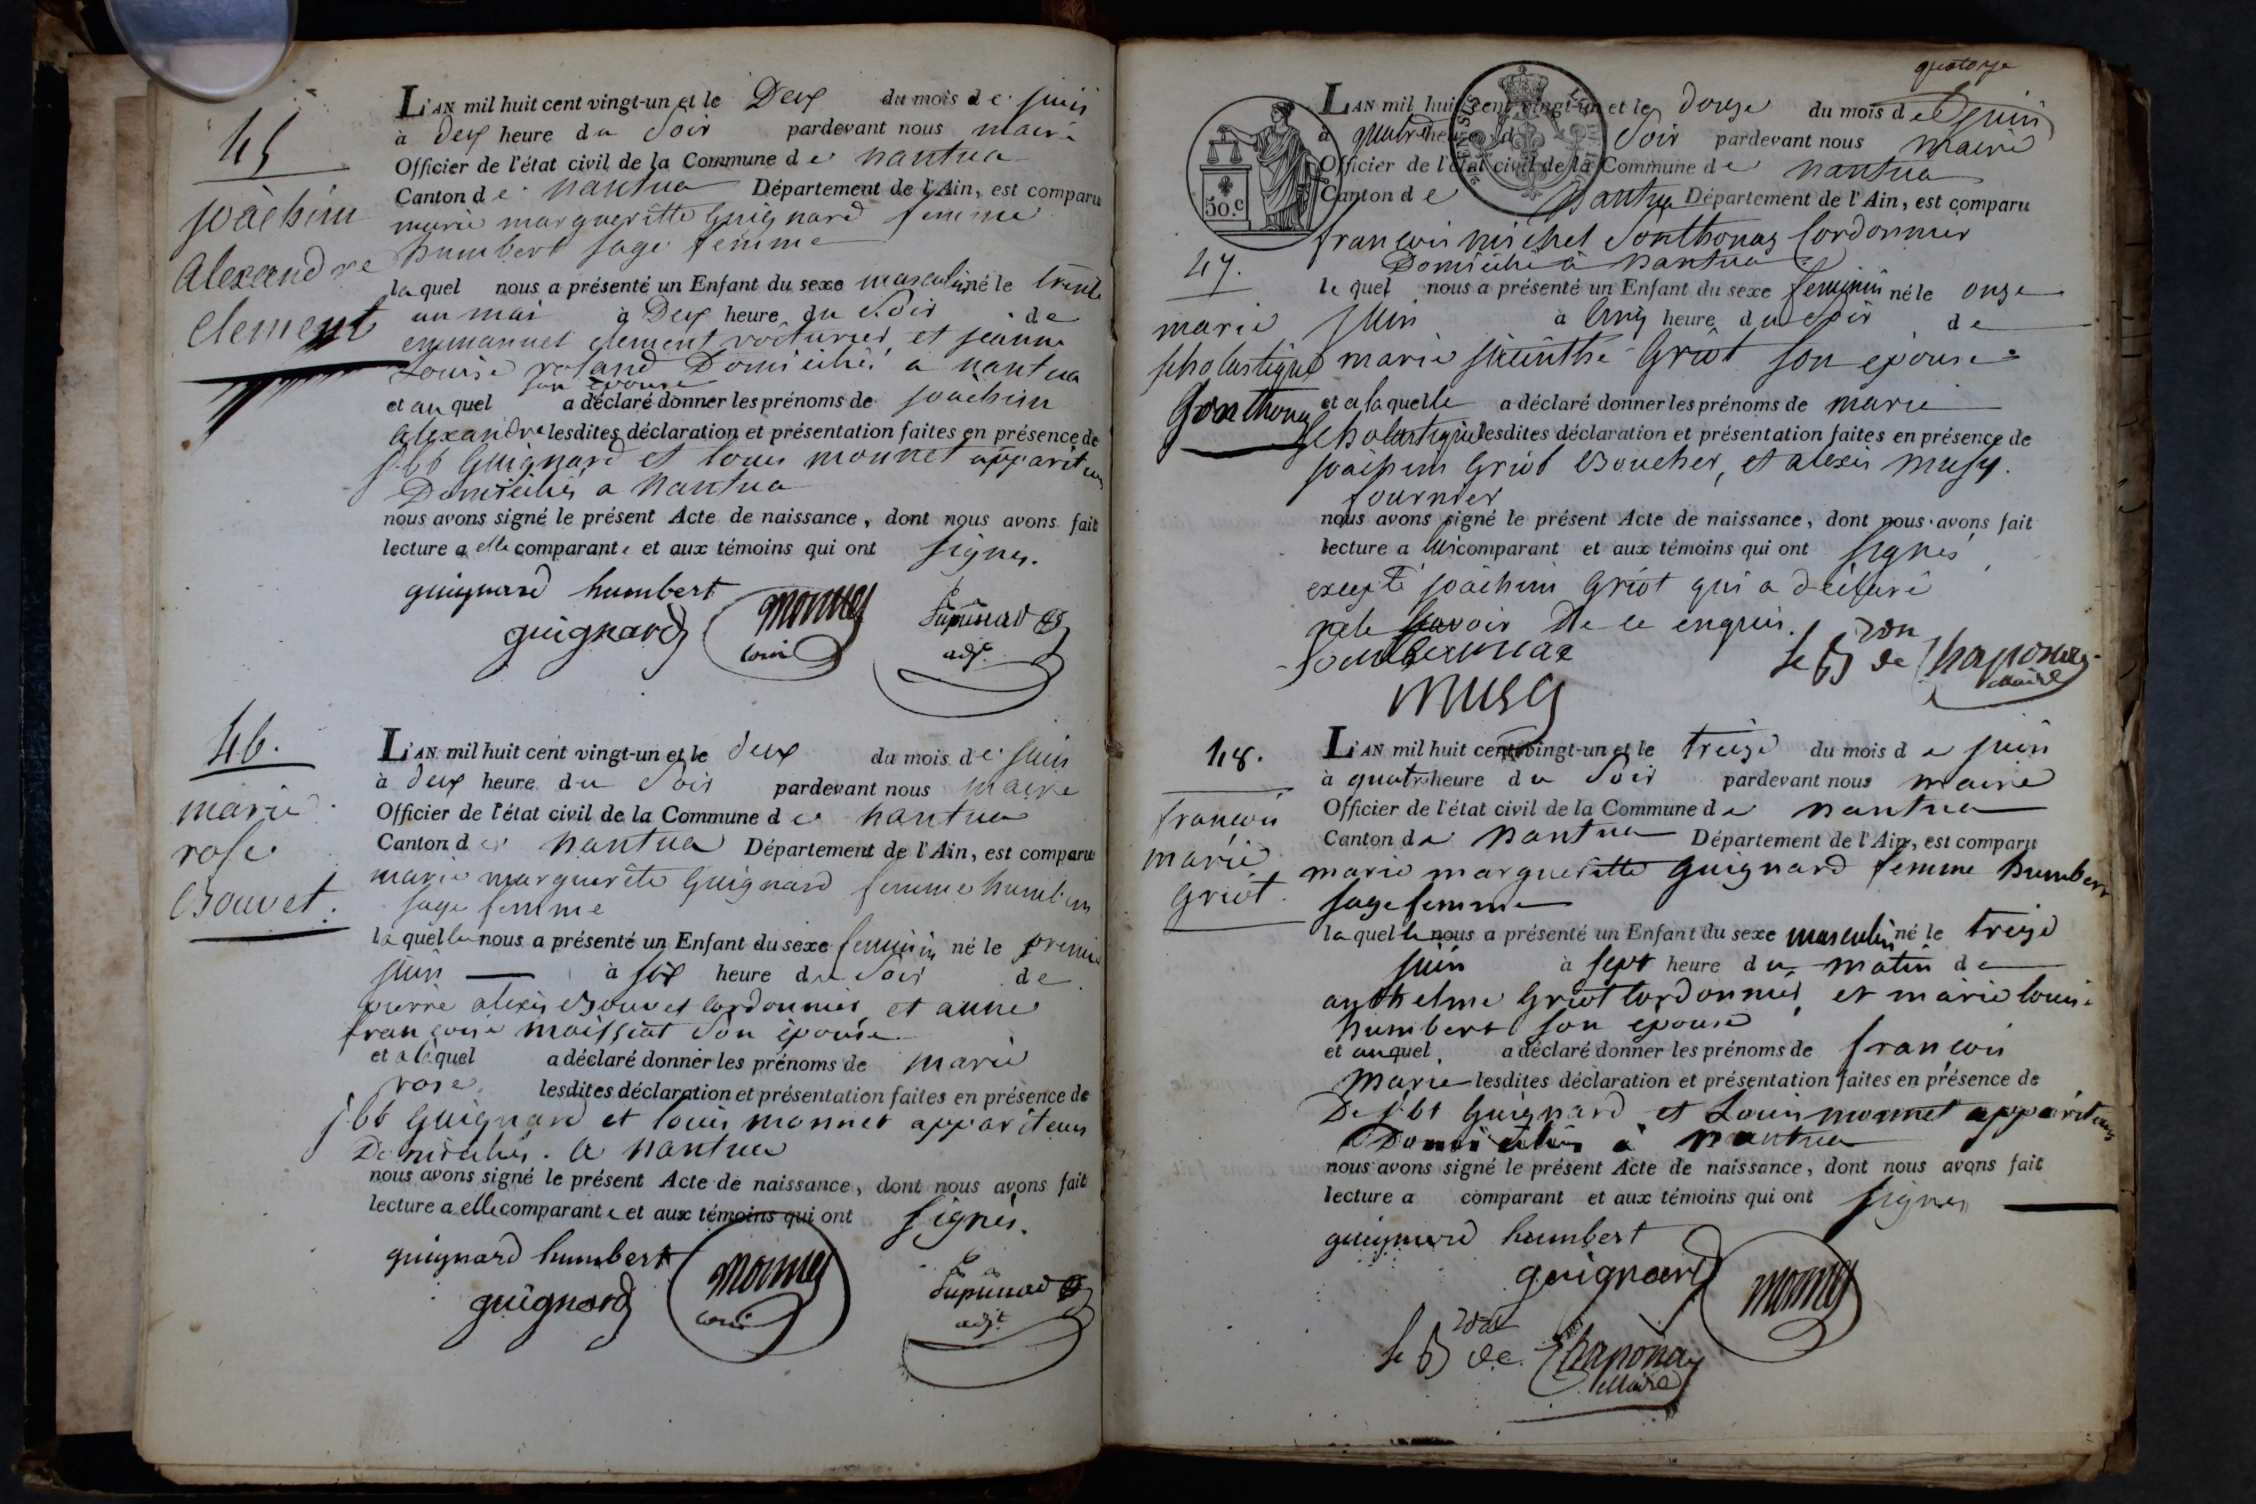 45
joàchim
alexandre
clement
L'AN mil huit cent vingt-un et le Deux du mois de juin
à deux heure du Soir pardevant nous maire
Officier de l'état civil de la Commune de nantua
Canton de nantua Département de l'Ain, est comparu
marie marguerîtte Guignard femme
humbert sage femme
laquel nous a présenté un Enfant du sexe masculin né le trente
un mai à Deux heure du Soir de
emmanuel clement voiturier et jeanne
Louise roland Domicilié a nantua
son épouse
et au quel a déclaré donner les prénoms de joàchim
alexandre lesdites déclaration et présentation faites en présence de
j.bt Guignard et louis monnet appariteurs
Domiciliés a nantua
nous avons signé le présent Acte de naissance, dont nous avons fait
lecture a elle comparante et aux témoins qui ont signés.
guignard humbert
guignard monnet
louis
adjt.
46.
marie
rose
Bouvet.
L'AN mil huit cent vingt-un et le deux du mois de juin
à deux heure du Soir pardevant nous maire
Officier de l'état civil de la Commune de nantua
Canton de nantua Département de l'Ain, est comparu
marie marguerîte Guignard femme humbert
sage femme
laquelle nous a présenté un Enfant du sexe feminin né le premier
juin à six heure du Soir de
pierre alexis Bouvet cordonnier et anne
françoise moissiat son épouse
et a lequel a déclaré donner les prénoms de marie
rose lesdites déclaration et présentation faites en présence de
j.bt Guignard et louis monnet appariteurs
Domiciliés. a nantua
nous avons signé le présent Acte de naissance, dont nous avons fait
lecture a elle comparante et aux témoins qui ont signés.
guignard humbert
guignard monnet
louis
adjt.
quatorze
50.C
47.
marie
scholastique
Sonthonas
L'AN mil huit cent vingt-un et le douze du mois de juin
à quatre heure du Soir pardevant nous maire
Officier de l'état civil de la Commune de nantua
Canton de nantua Département de l'Ain, est comparu
françois michel Sonthonas Cordonnier
Domicilié à nantua
le quel nous a présenté un Enfant du sexe feminin né le onze
juin à cinq heure du soir de
marie jacinthe Griot son épouse
et a laquelle a déclaré donner les prénoms de marie
scholastique lesdites déclaration et présentation faites en présence de
joàchim Griot Boucher, et alexis musy.
fournier
nous avons signé le présent Acte de naissance, dont nous avons fait
lecture a lui comparant et aux témoins qui ont signés
excepté joàchim Griot qui a déclaré
ne le savoir De ce enquis.
musy
le Bon de Chaponay
Maire
48.
françois
marie
Griot.
L'AN mil huit cent vingt-un et le treize du mois de juin
à quatre heure du Soir pardevant nous maire
Officier de l'état civil de la Commune de nantua
Canton de nantua Département de l'Ain, est comparu
marie marguerîtte Guignard femme humbert
sage femme
laquelle nous a présenté un Enfant du sexe masculin né le treize
juin à sept heure du matin de
anthelme Griot cordonnier et marie louise
humbert son épouse
et auquel a déclaré donner les prénoms de françois
marie lesdites déclaration et présentation faites en présence de
De j.bt Guignard et Louis monnet appariteurs
Domiciliés à nantua
nous avons signé le présent Acte de naissance, dont nous avons fait
lecture a comparant et aux témoins qui ont signés
guignard humbert
guignard monnet
le Bon de Chaponay
Maire